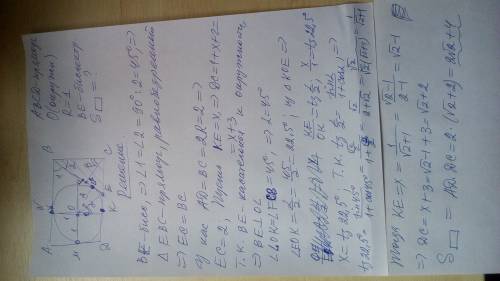 ABCD-прямоуг.
O(окружн.)
R=1
BE-биссектр
S□ = ?
Решение
BE-бисс, ⇒ ∠1=∠2 = 90°:2=45° ⇒
△EBC-прямоуг, равнобедренный
⇒ EC=BC
у нас AD=BC=2R=2 ⇒
EC=2, Пусть KE=x, ⇒ DC=1+x+2=
=x+3
Т.к. BE-касательная к окружности,
⇒ BE⊥OL
∠LOK=∠FCB=45°, ⇒ ∠=45
∠EOK = α/2 = 45/2 = 22,5°; из △KOE ⇒
KE/OK = tg α/2; x/1 = tg 22,5°
x = tg 22,5°; Т.к. tg α/2 = sinα/(1+cosα), ⇒
tg 22,5° = sin45°/(1+cos45°) = (√2/2)/(1+√2/2) = √2/(2+√2) = √2/(√2(√2+1)) = 1/(√2+1)
Тогда KE=x = 1/(√2+1) = (√2-1)/(2-1) = √2-1
⇒ DC = x+3 = √2-1+3 = √2+2
S□ = AD·DC = 2·(√2+2) = 2√2+4